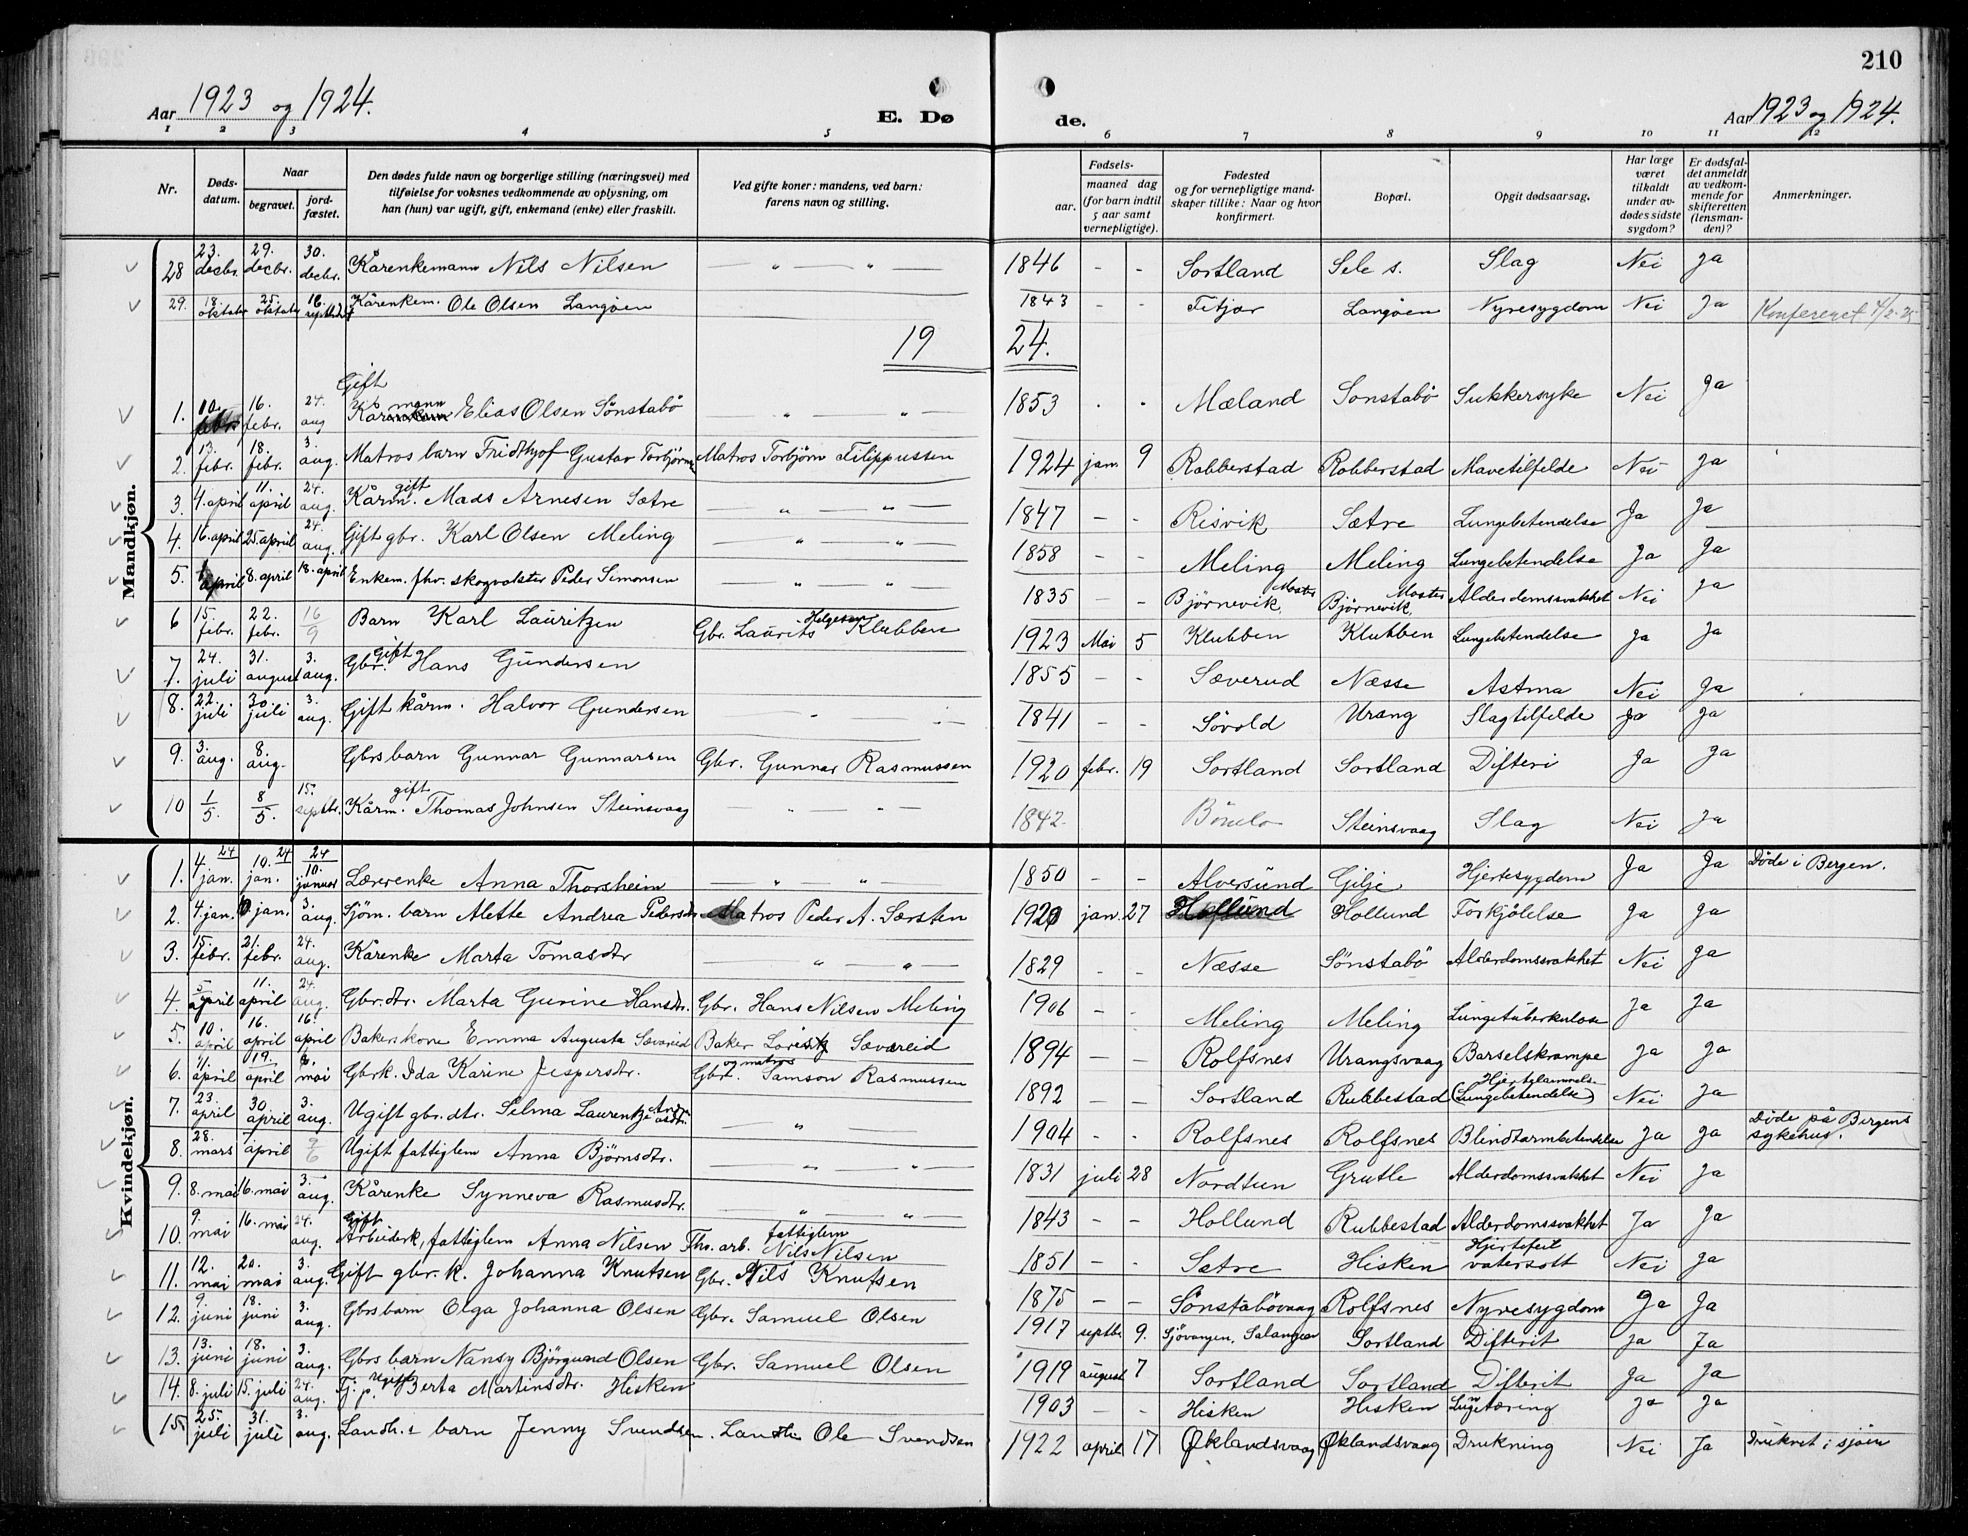 210
Aar 1923 og 1924.
E. Dø de.
Aar 1923 og 1924.
1 2 3 4 5 6 7 8 9 10 11 12
Nr.
Døds-datum.
Naar
begravet.
jord-fæstet.
Den dødes fulde navn og borgerlige stilling (næringsvei) med
tilføielse for voksnes vedkommende av oplysning, om
han (hun) var ugift, gift, enkemand (enke) eller fraskilt.
Ved gifte koner: mandens, ved barn:
farens navn og stilling.
Fødsels-
aar.
maaned dag
(for barn indtil
5 aar samt
vernepligtige).
Fødested
og for vernepligtige mand-
skaper tillike: Naar og hvor
konfirmert.
Bopæl.
Opgit dødsaarsag.
Har læge
været
tilkaldt
under av-
dødes sidste
sygdom?
Er dødsfal-
det anmeldt
av vedkom-
mende for
skifteretten
(lensman-
den)?
Anmerkninger.
Mandkjøn.
28 23. decbr. 29. decbr. 30. decbr. Kårenkemann Nils Nilsen — „ — „ — 1846 - - Sortland Sele s. Slag Nei Ja
29. 18. oktober 25. oktober 16. Kårenkem. Ole Olsen Langøen 1843 - - Fitjar Langøen Nyresygdom Nei Ja Konfereret 4/2-25
19 24.
1. 10. febr. 16. febr. 24. aug Gift Kårmann Elias Olsen Sönstabö — „ — „ — 1853 Mæland Sonstabö Sukkersyke Nei Ja
2. 13. febr. 18. febr. 3. aug. Matros barn Fridthjof Gustav Torbjörns Matros Torbjörn Filippussen 1924 jan. 9 Robberstad Robberstad Mavetilfelde Nei Ja
3. 4. april 11. april 24. aug. Kårm. gift Mads Arnesen Sætre — „ — „ — 1847 - - Risvik Sætre Lungebetendelse Ja Ja
4. 16. april 25. april 24. aug. Gift gbr. Karl Olsen Meling — „ — „ — 1858 - - Meling Meling Lungebetendelse Ja Ja
5. 1 april 8. april 18. april Enkem. fhv. skogvokter Peder Simonsen — „ — „ — 1835 - - Björnevik, Moster Björnevik, Moster Alderdomssvakhet Nei Ja
6 15. febr. 22. febr. 16/9 Barn Karl Lauritzen Gbr. Laurits Helgesen Klubben 1923 Mai 5 Klubben Klubben Lungebetendelse Ja Ja
7. 24. juli 31. august 3. aug. Gbr. gift Hans Gundersen 1855 - - Sæverud Næsse Astma Nei Ja
8. 22. juli 30. juli 3. aug. Gift kårm. Halvor Gundersen 1841 - - Sövold Urang Slagtilfelde Ja Ja
9. 3. aug. 8. aug. Gbrs barn Gunnar Gunnarsen Gbr. Gunnar Rasmussen 1920 febr. 19 Sortland Sortland Difteri Ja Ja
10 1/5. 8/5. 15. septbr. Kårm. gift Thomas Johnsen Steinsvaag — „ — „ — 1842 Bömlo Steinsvaag Slag Nei Ja
Kvindekjøn.
1. 4. 24 jan. 10. 24 jan. 24 10. januar Lærerenke Anna Thorsheim — „ — „ — 1850 - - Alversund Gilje Hjertesygdom Ja Ja Döde i Bergen.
2. 4. jan. jan. 3. aug. Sjöm. barn Alette Andrea Pedersdtr Matros Peder A. Særsten 1920 jan. 27 Hollund Hollund Forkjölelse Ja Ja
3. 15. febr. 21. febr. 24. aug. Kårenke Marta Tomasdtr — „ — „ — 1829 - - Næsse Sönstabö Alderdomssvakhet Nei Ja
4. 5 april 11. april 24. aug. Gbr. dtr. Marta Gurine Hansdtr. Gbr. Hans Nilsen Meling 1906 - - Meling Meling Lungetuberkulose Ja Ja
5. 10. april 16. april 16. april Bakerskone Emma Augusta Sævareid Baker Sævareid 1894 - - Rolfsnes Urangsvaag Barselskrampe Ja Ja
6. 11. april 19. april 8. mai Gbrk. Ida Karine Jespersdtr. Gbr. og matros Samson Rasmussen 1892 - - Sortland Rubbestad Hjertelammelse (Lungebetendelse) Nei Ja
7. 23. april 30. april 3. aug. Ugift gbr. dtr. Selma Laurentze Andreasdtr. — „ — 1904 - - Rolfsnes Rolfsnes Blindtarmbetendelse Ja Ja Döde på Bergens sykehus.
8. 28. mars april 9/6 Ugift fattiglem Anna Björnsdtr. — „ — „ — 1831 juli 28 Nordtun Grutle Alderdomssvakhet Nei Ja
9. 8. mai 16. mai 3. aug. Kårenke Synneva Rasmusdtr. — „ — „ — 1843 - - Hollund Rubbestad Alderdomssvakhet Ja Ja
10. 9. mai 16. mai 24. aug. Gift Arbeiderk, fattiglem Anna Nilsen Fhv. arb. fattiglem Nils Nilsen 1851 - - Sætre Hisken Hjertefeil vatersott Nei Ja
11. 12. mai 20. mai 3. aug. Gift gbr. k. Johanna Knutsen Gbr. Nils Knutsen 1875 - - Sönstabövaag Rolfsnes Nyresygdom Ja Ja
12. 9. juni 18. juni 3. aug. Gbrs barn Olga Johanna Olsen Gbr. Samuel Olsen 1917 septbr. 9. Sjövangen, Salangen Sortland Difterit Ja Ja
13. 13. juni 18. juni 3. aug. Gbrs barn Nansy Björgund Olsen Gbr. Samuel Olsen 1919 august 7 Sortland Sortland Difterit Ja Ja
14. 8. juli 15. juli 24. aug. Tj. p. Ugift Berta Martinsdtr. Hisken 1903 - - Hisken Hisken Lungetæring Ja Ja
15 25. juli 31. juli 3. aug. Landh.s barn Jenny Svendsen. Landh. Ole Svendsen 1922 april 17 Øklandsvaag Øklandsvaag Drukning Nei Ja Druknet i sjöen